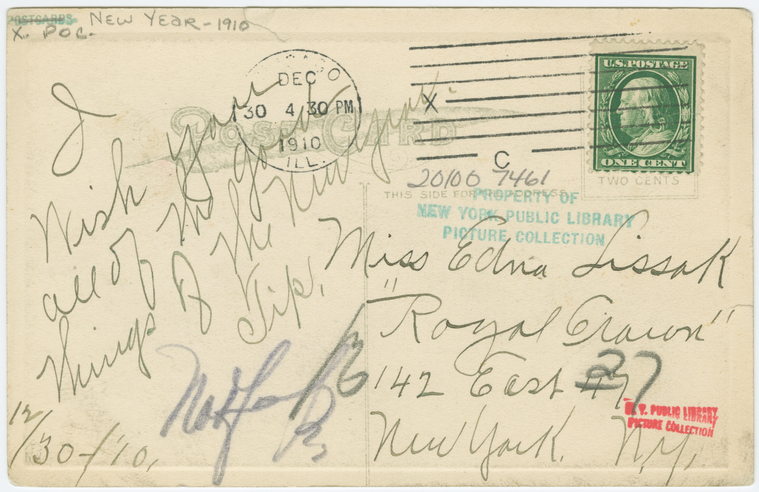 POSTCARDS NEW YEAR - 1910
X. POC.
CHICAGO
DEC
30 4 30 PM
1910
ILL.
X
C
U.S. POSTAGE
ONE CENT
TWO CENTS
POST CARD
THIS SIDE FOR THE ADDRESS
20100 7461
PROPERTY OF
NEW YORK PUBLIC LIBRARY
PICTURE COLLECTION
I
Wish You
all of the good
things of the New Year.
Tip.
12/30-/'10.
Miss Edna Lissak
"Royal Crown"
142 East
27
New York. N.Y.
N. Y. PUBLIC LIBRARY
PICTURE COLLECTION